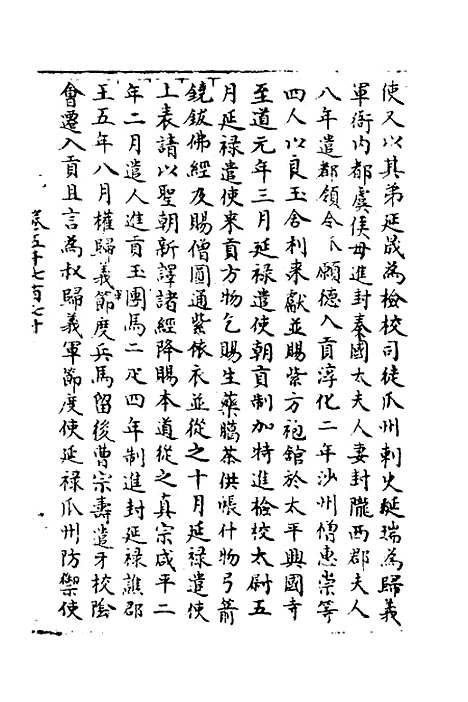 使又以其弟延晟為檢校司徒瓜州刺史延瑞為歸義
軍衙内都虞侯母進封秦國太夫人妻封隴西郡夫人
八年遣都領令⺀願德入貢淳化二年沙州僧惠崇等
四人以良玉舍利來獻並賜紫方袍舘於太平興國寺
至道元年三月延禄遣使朝貢制加特進檢校太尉五
月延禄遣使來貢方物乞賜生藥臈茶供帳什物弓箭
鐃鈸佛經及賜僧圓通紫依衣並從之十月延禄遣使
上表請以聖朝新譯諸經降賜本道從之真宗咸平二
年二月遣人進貢玉團馬二疋四年制進封延禄譙郡
王五年八月權歸義節度兵馬留後曹宗壽遣牙校陰
會遷入貢且言為叔歸義軍節度使延禄瓜州防禦使
卷五千七百七十